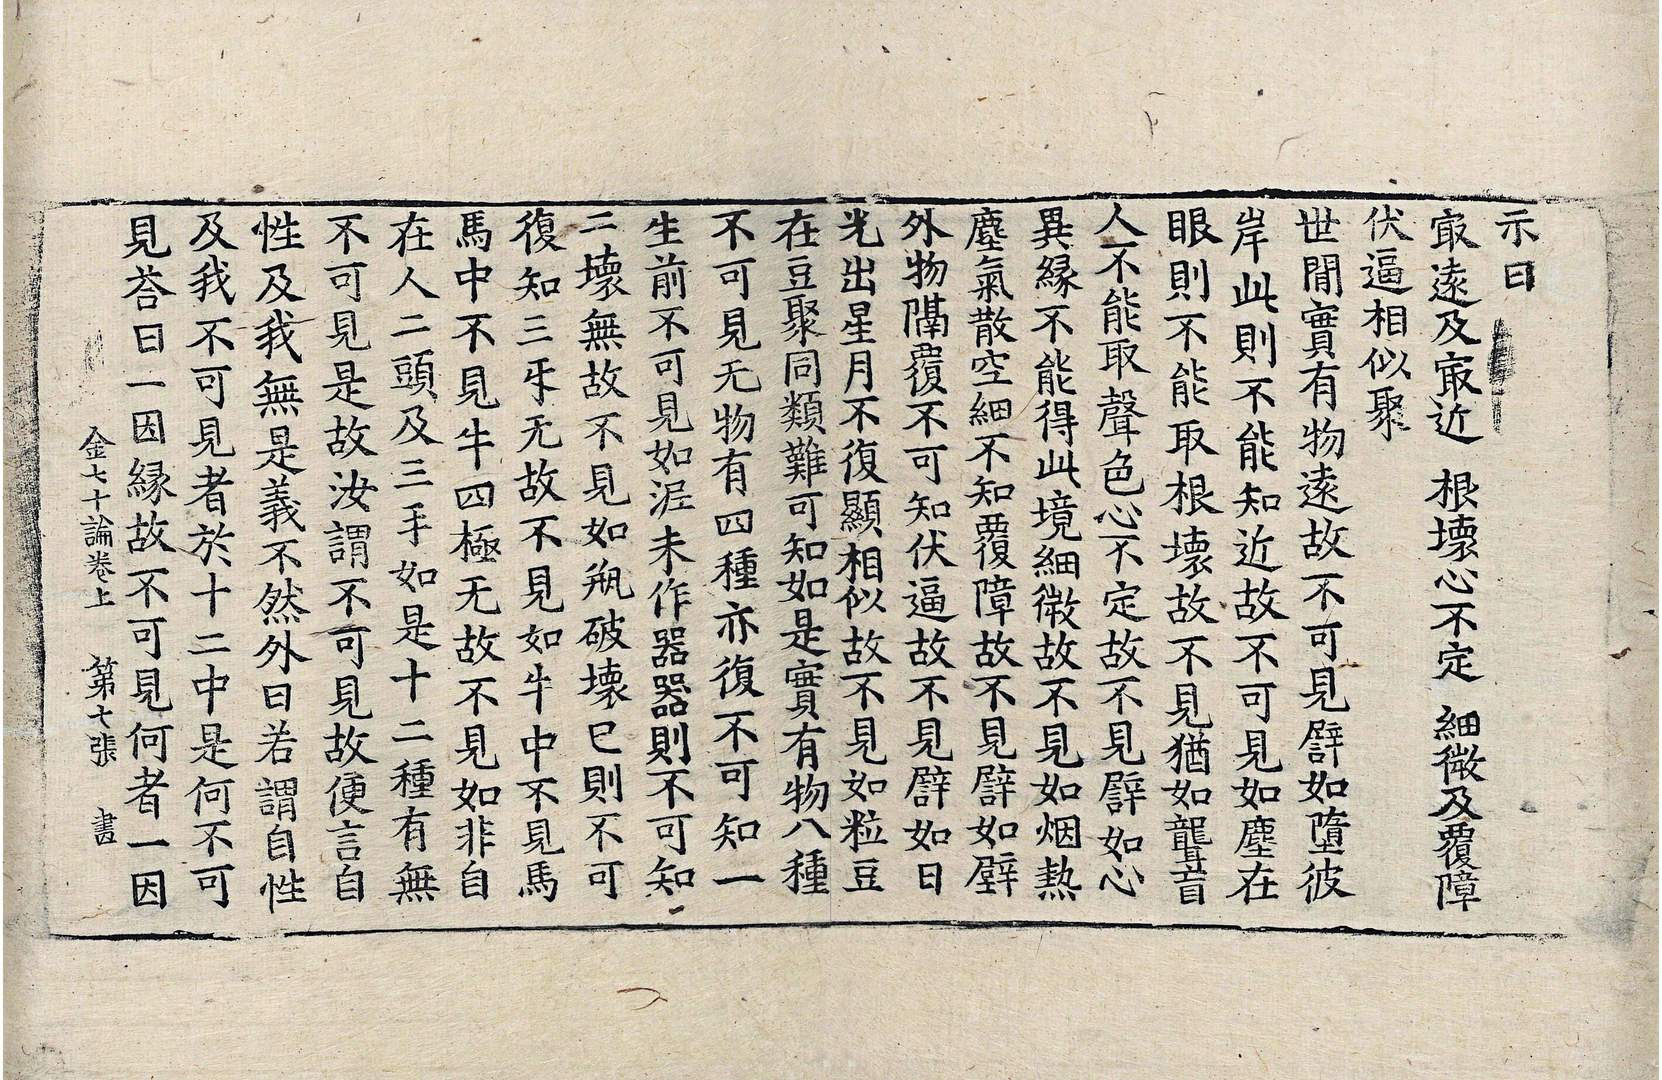 示曰
冣遠及冣近　根壞心不定　細微及覆障
伏逼相似聚
世間實有物遠故不可見譬如墮彼
岸此則不能知近故不可見如塵在
眼則不能取根壞故不見猶如聾盲
人不能取聲色心不定故不見譬如心
異緣不能得此境細微故不見如烟熱
塵氣散空細不知覆障故不見譬如壁
外物隔覆不可知伏逼故不見譬如日
光出星月不復顯相似故不見如粒豆
在豆聚同類難可知如是實有物八種
不可見无物有四種亦復不可知一
生前不可見如泥未作器器則不可知
二壞無故不見如瓶破壞已則不可
復知三牙无故不見如牛中不見馬
馬中不見牛四極无故不見如非自
在人二頭及三手如是十二種有無
不可見是故汝謂不可見故便言自
性及我無是義不然外曰若謂自性
及我不可見者於十二中是何不可
見荅曰一因緣故不可見何者一因
金七十論卷上　第七張　書